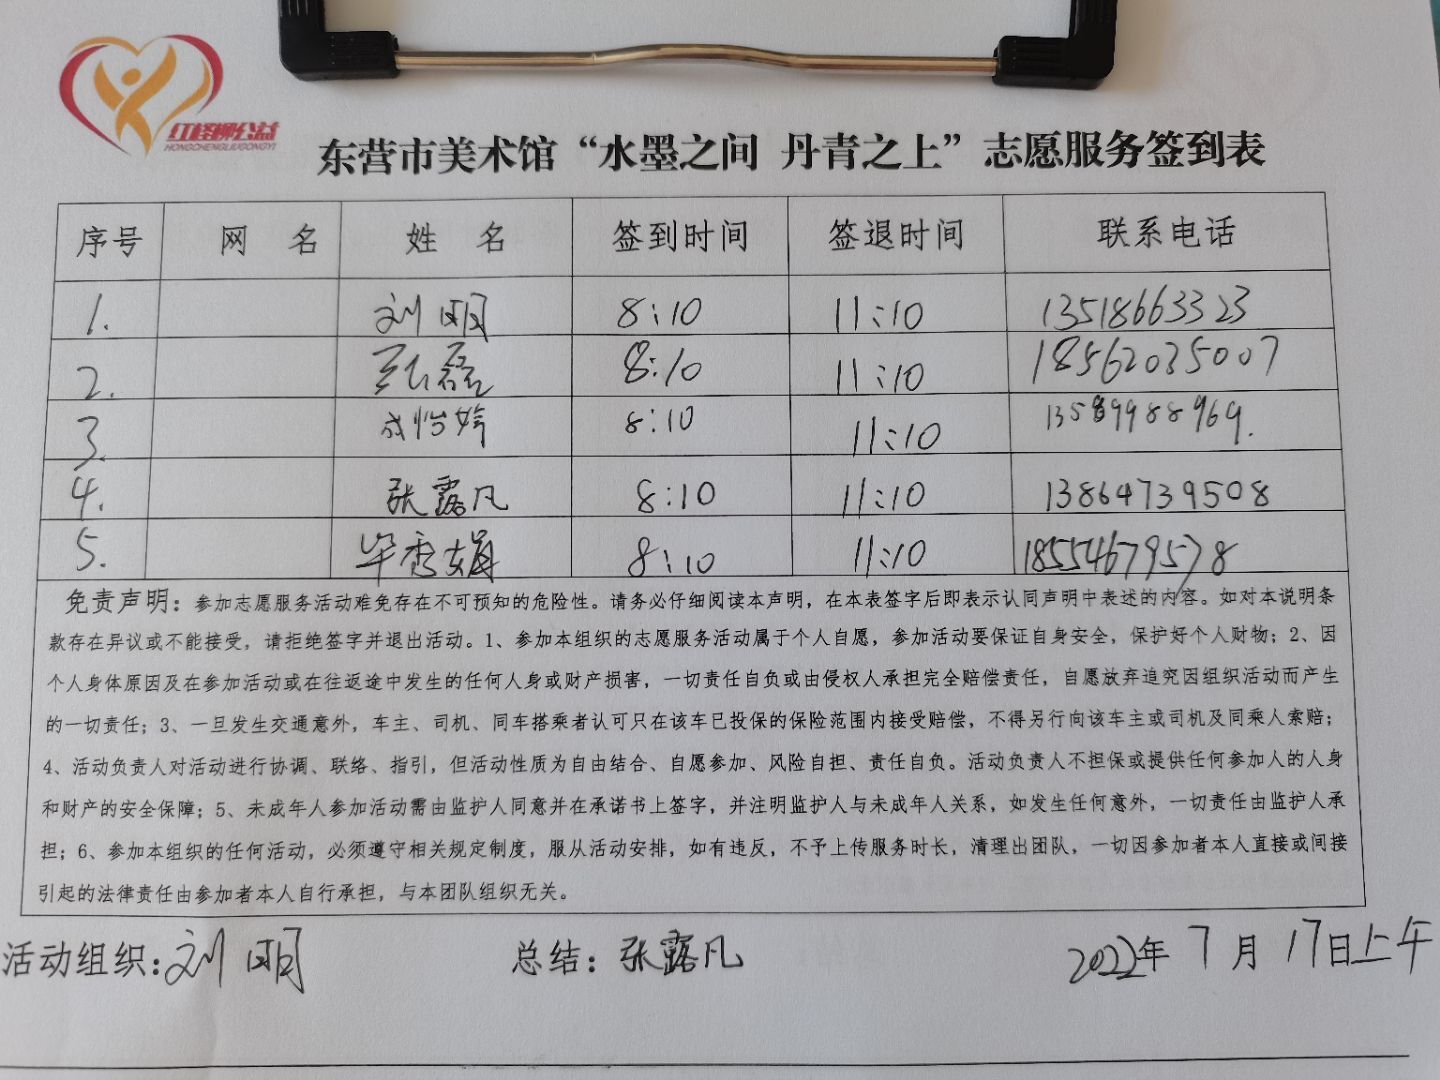 红柽柳公益
HONGCHENGLIUGONGYI
东营市美术馆“水墨之间 丹青之上”志愿服务签到表
序号 网 名 姓 名 签到时间 签退时间 联系电话
1. 刘明 8:10 11:10 13518663323
2. 8:10 11:10 18562035007
3. 成怡婷 8:10 11:10 13589988969.
4. 张露凡 8:10 11:10 13864739508
5. 毕秀娟 8:10 11:10 18554679578
免责声明：参加志愿服务活动难免存在不可预知的危险性。请务必仔细阅读本声明，在本表签字后即表示认同声明中表述的内容。如对本说明条
款存在异议或不能接受，请拒绝签字并退出活动。1、参加本组织的志愿服务活动属于个人自愿，参加活动要保证自身安全，保护好个人财物；2、因
个人身体原因及在参加活动或在往返途中发生的任何人身或财产损害，一切责任自负或由侵权人承担完全赔偿责任，自愿放弃追究因组织活动而产生
的一切责任；3、一旦发生交通意外，车主、司机、同车搭乘者认可只在该车已投保的保险范围内接受赔偿，不得另行向该车主或司机及同乘人索赔；
4、活动负责人对活动进行协调、联络、指引，但活动性质为自由结合、自愿参加、风险自担、责任自负。活动负责人不担保或提供任何参加人的人身
和财产的安全保障；5、未成年人参加活动需由监护人同意并在承诺书上签字，并注明监护人与未成年人关系，如发生任何意外，一切责任由监护人承
担；6、参加本组织的任何活动，必须遵守相关规定制度，服从活动安排，如有违反，不予上传服务时长，清理出团队，一切因参加者本人直接或间接
引起的法律责任由参加者本人自行承担，与本团队组织无关。
活动组织：刘明 总结：张露凡 2022年7月17日上午